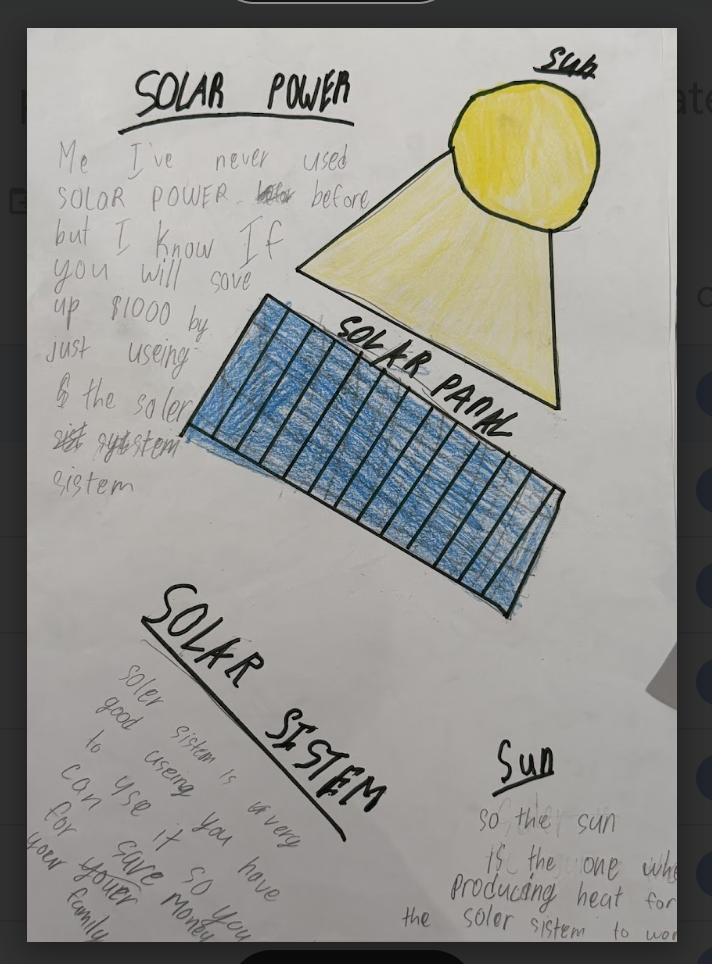 SOLAR POWER
Sun
Me I've never used
SOLAR POWER before
but I know If
you will save
up $1000 by
just useing
the soler
sistem
SOLAR PANAL
SOLAR SISTEM
soler sistem is a very
good useing you have
to use it so you
can save money
for your
your family
Sun
so the sun
is the one
Producing heat for
the soler sistem to